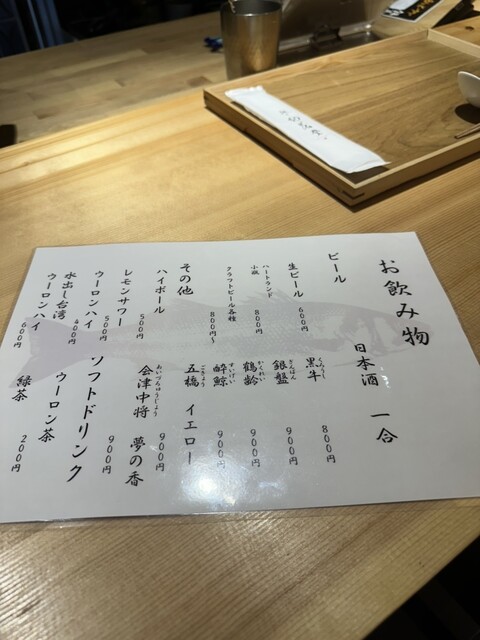 お飲み物
ビール
生ビール
600円
ハートランド
小瓶
800円
クラフトビール各種
800円~
その他
ハイボール
500円
レモンサワー
500円
ウーロンハイ
400円
水出し台湾
ウーロンハイ
600円
日本酒 一合
くろうし
黒牛
800円
ぎんばん
銀盤
900円
かくれい
鶴齢
900円
すいげい
酔鯨
900円
ごきょう
五橋 イエロー
900円
あいづちゅうじょう
会津中将 夢の香
900円
ソフトドリンク
ウーロン茶
緑茶
200円